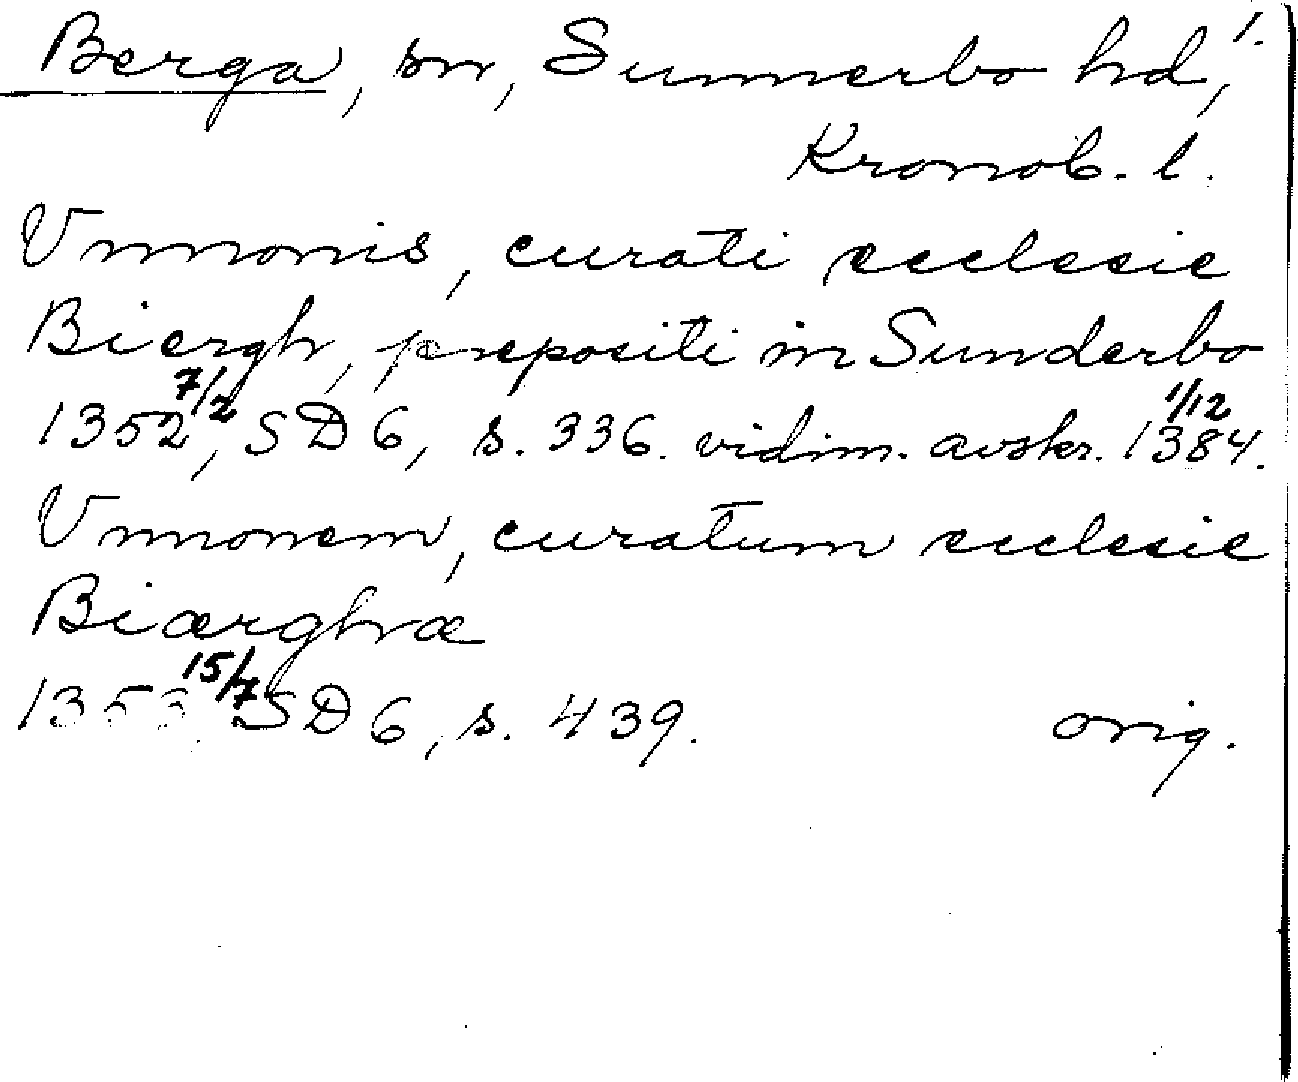 Berga, sn, Sunnerbo hd, 1.
Kronob. l.
Vnnonis, curati ecclesie
Biergh, prepositi in Sunderbo
1352 7/2, SD 6, s. 336. vidim. avskr. 1384 1/12.
Vnnonem, curatum ecclesie
Biærghæ
1353 15/7 SD 6, s. 439. orig.